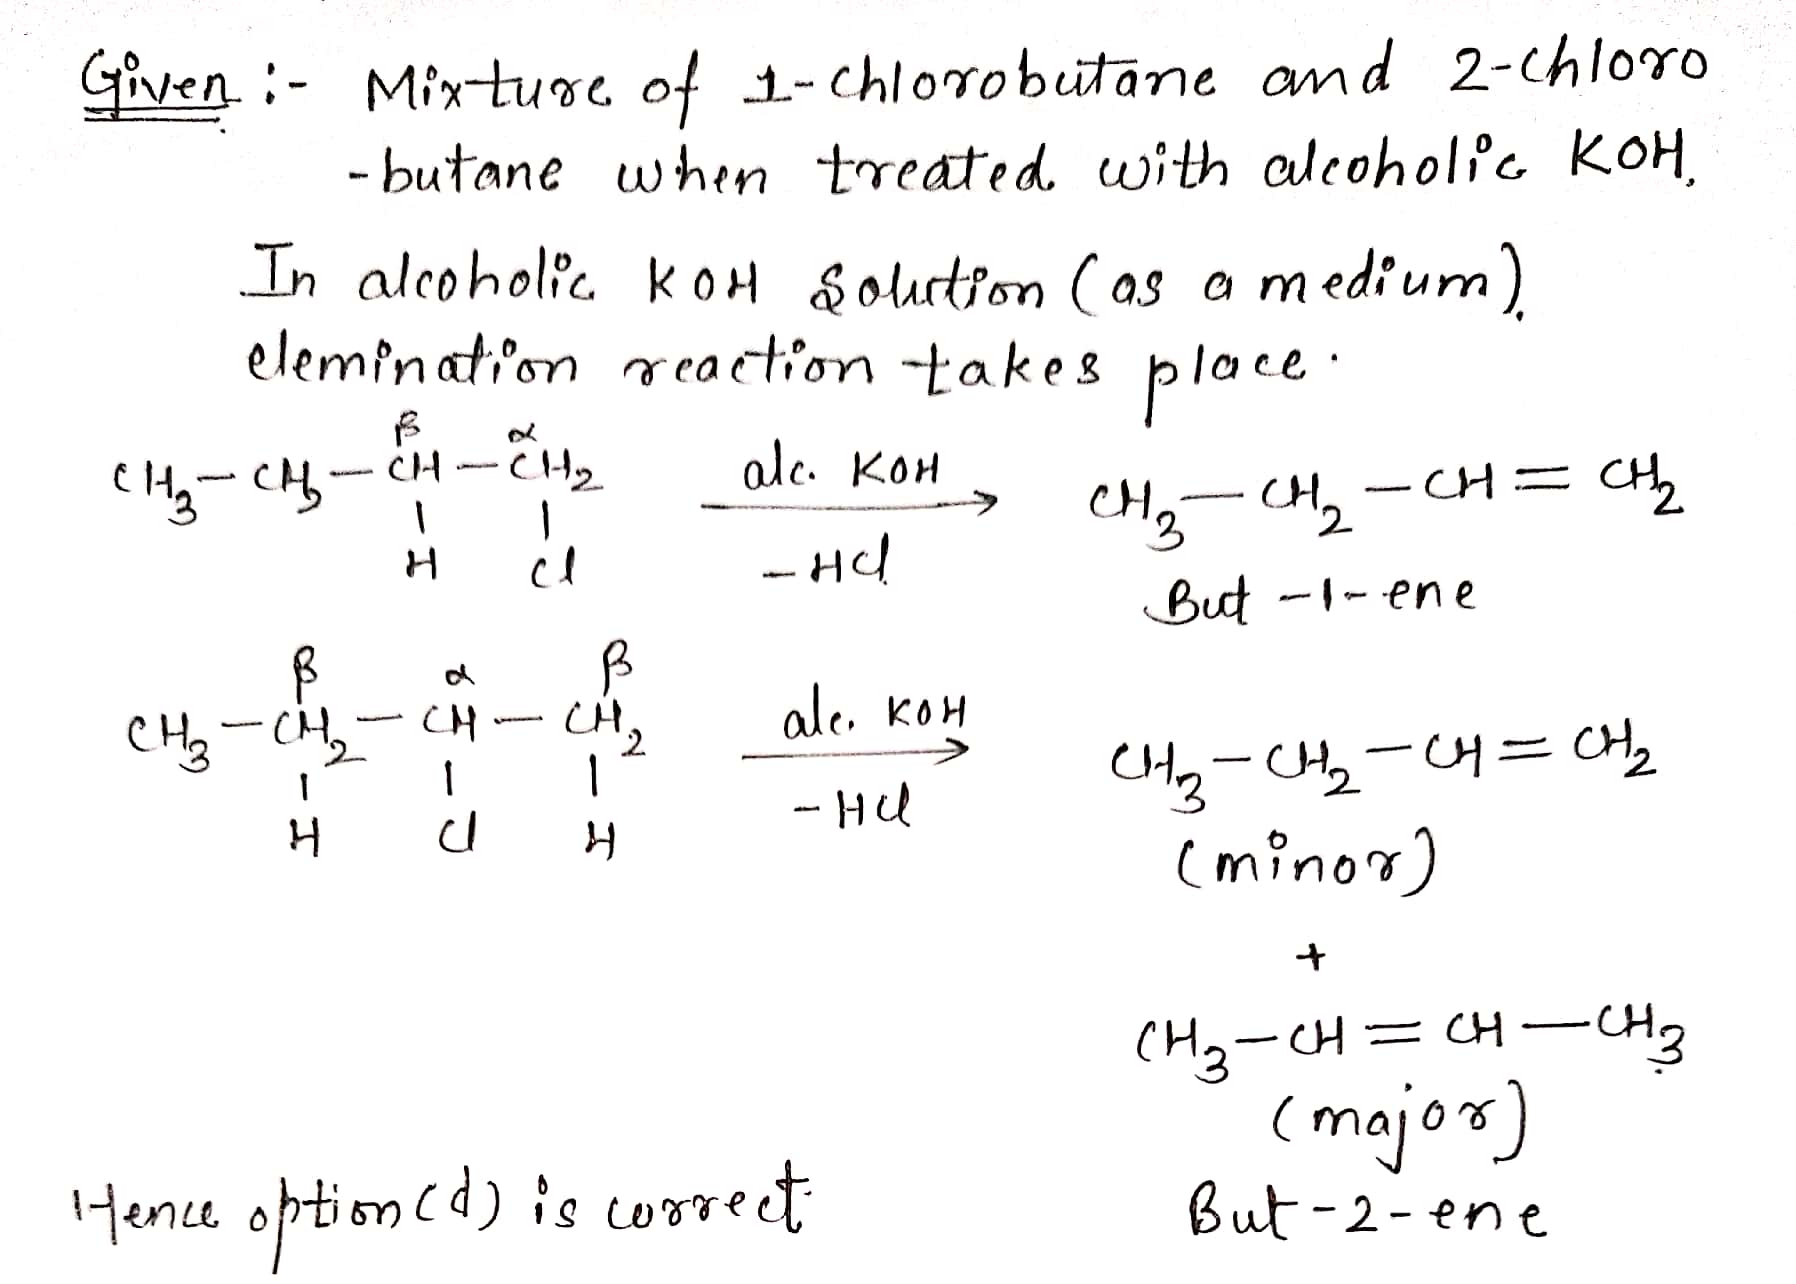 Given :- Mixture of 1-chlorobutane and 2-chloro
-butane when treated with alcoholic KOH.
In alcoholic KOH Solution (as a medium),
elemination reaction takes place.
β α
CH3 – CH3 – CH – CH2 alc. KOH CH3 – CH2 – CH = CH2
H Cl – HCl
But -1- ene
β α β
CH3 – CH2 – CH – CH2 alc. KOH CH3 – CH2 – CH = CH2
H Cl H – HCl
(minor)
+
CH3 – CH = CH – CH3
(major)
Hence option (d) is correct But - 2 - ene